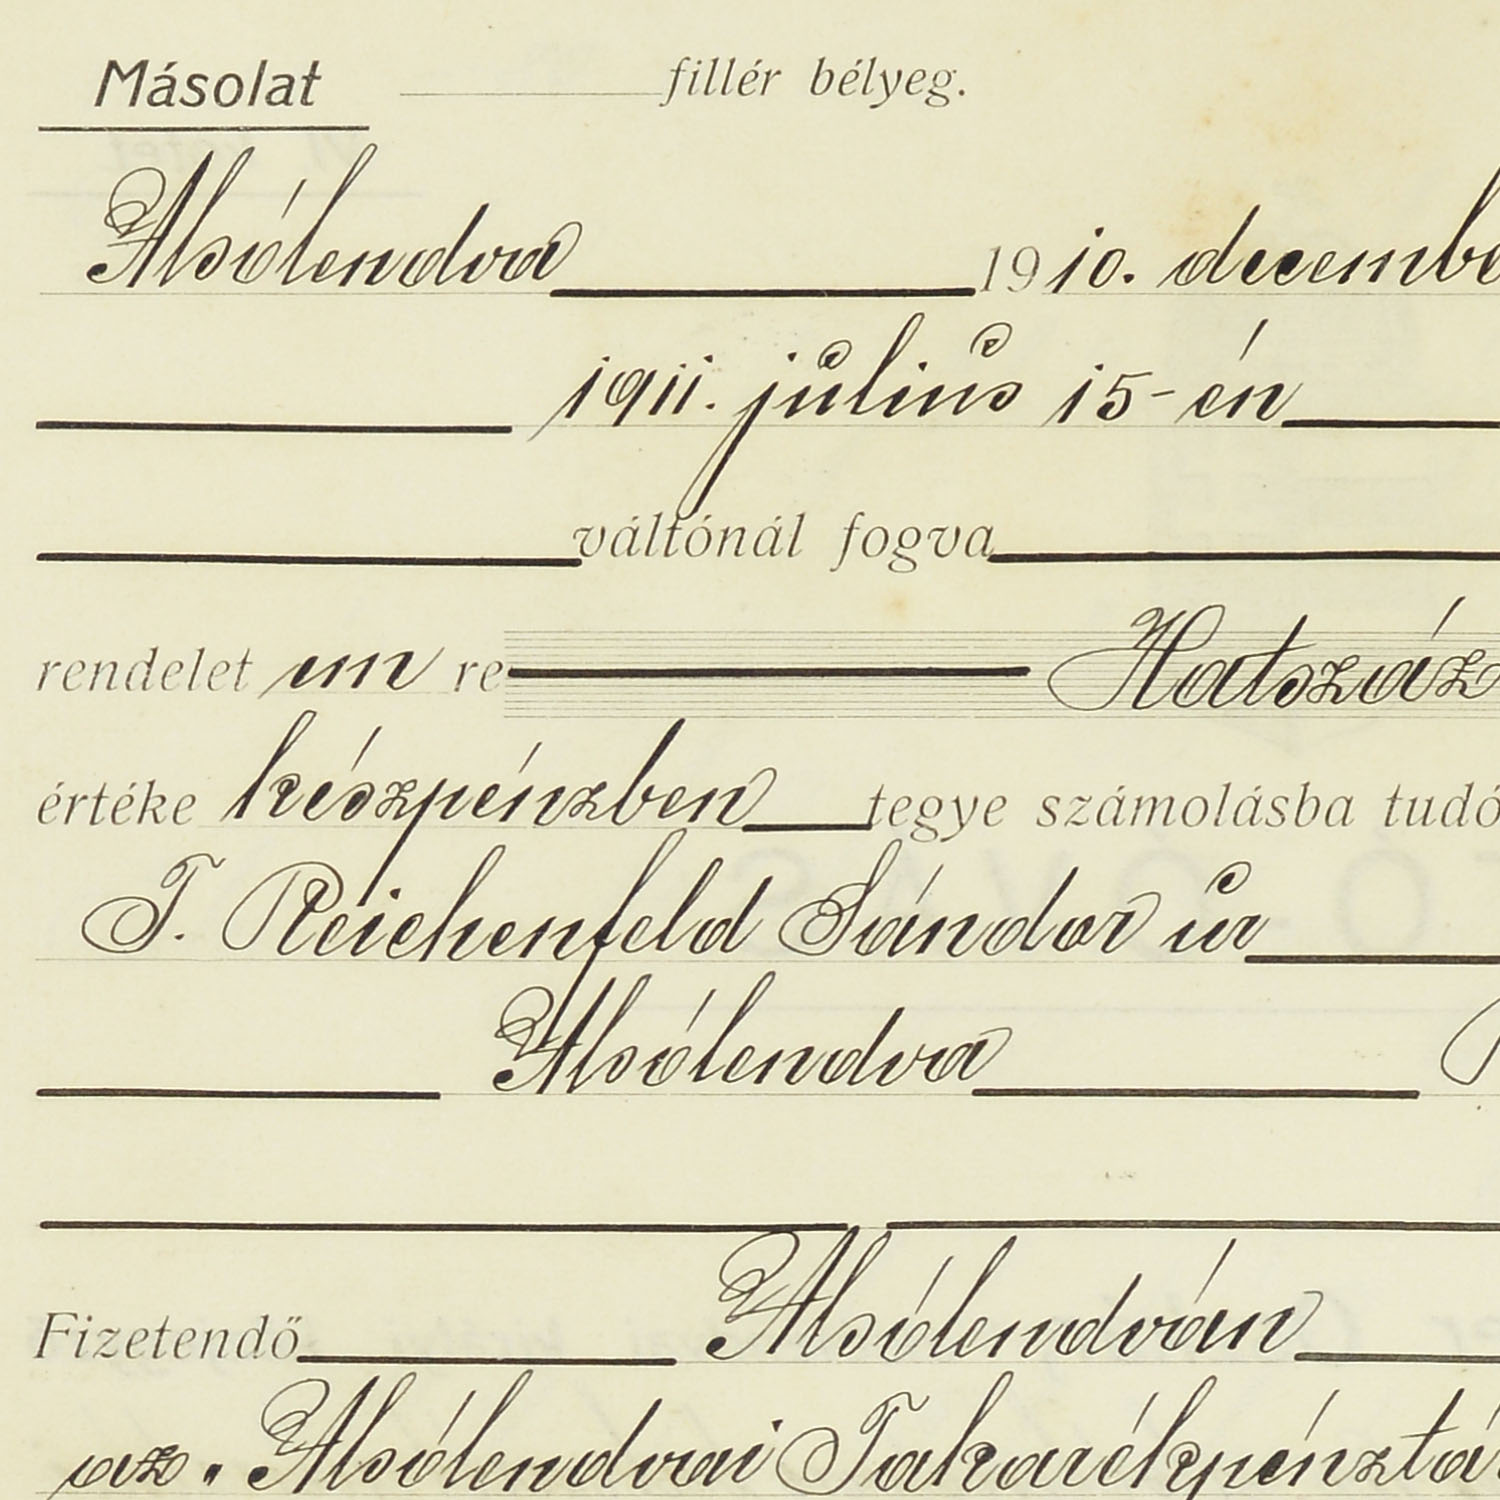 Másolat fillér bélyeg.
Alsólendva 1910. decembe
1911. július 15-én
váltónál fogva
rendelet em re Hatszáz
értéke készpénzben tegye számolásba tudó
T. Reichenfeld Sándor úr
Alsólendva
Fizetendő Alsólendván
az. Alsólendvai Takarékpénztá